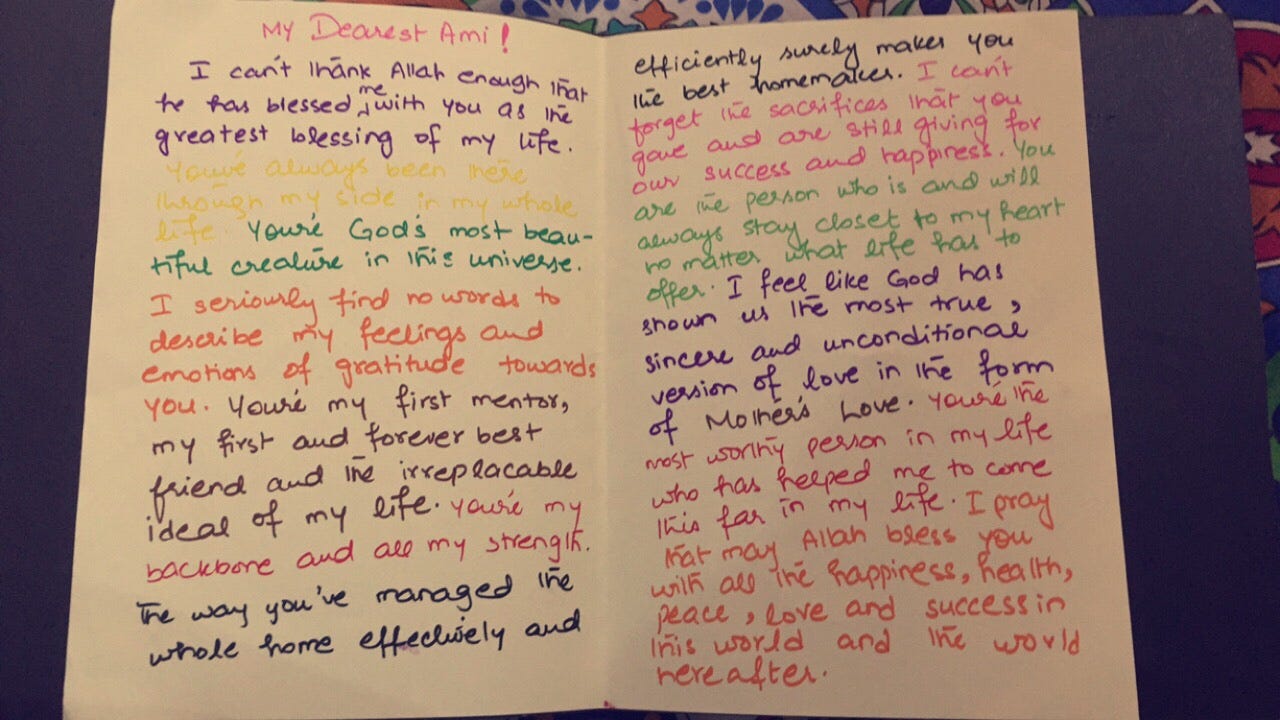 My Dearest Ami!
I can't thank Allah enough that
he has blessed me with you as the
greatest blessing of my life.
You've always been there
through my side in my whole
life. You're God's most beau-
tiful creature in this universe.
I seriously find no words to
describe my feelings and
emotions of gratitude towards
you. You're my first mentor,
my first and forever best
friend and the irreplacable
ideal of my life. You're my
backbone and all my strength.
The way you've managed the
whole home effectively and
efficiently surely makes you
the best homemaker. I can't
forget the sacrifices that you
gave and are still giving for
our success and happiness. You
are the person who is and will
always stay closet to my heart
no matter what life has to
offer. I feel like God has
shown us the most true,
sincere and unconditional
version of love in the form
of Mother's Love. You're the
most worthy person in my life
who has helped me to come
this far in my life. I pray
that may Allah bless you
with all the happiness, health,
peace, love and success in
this world and the world
hereafter.